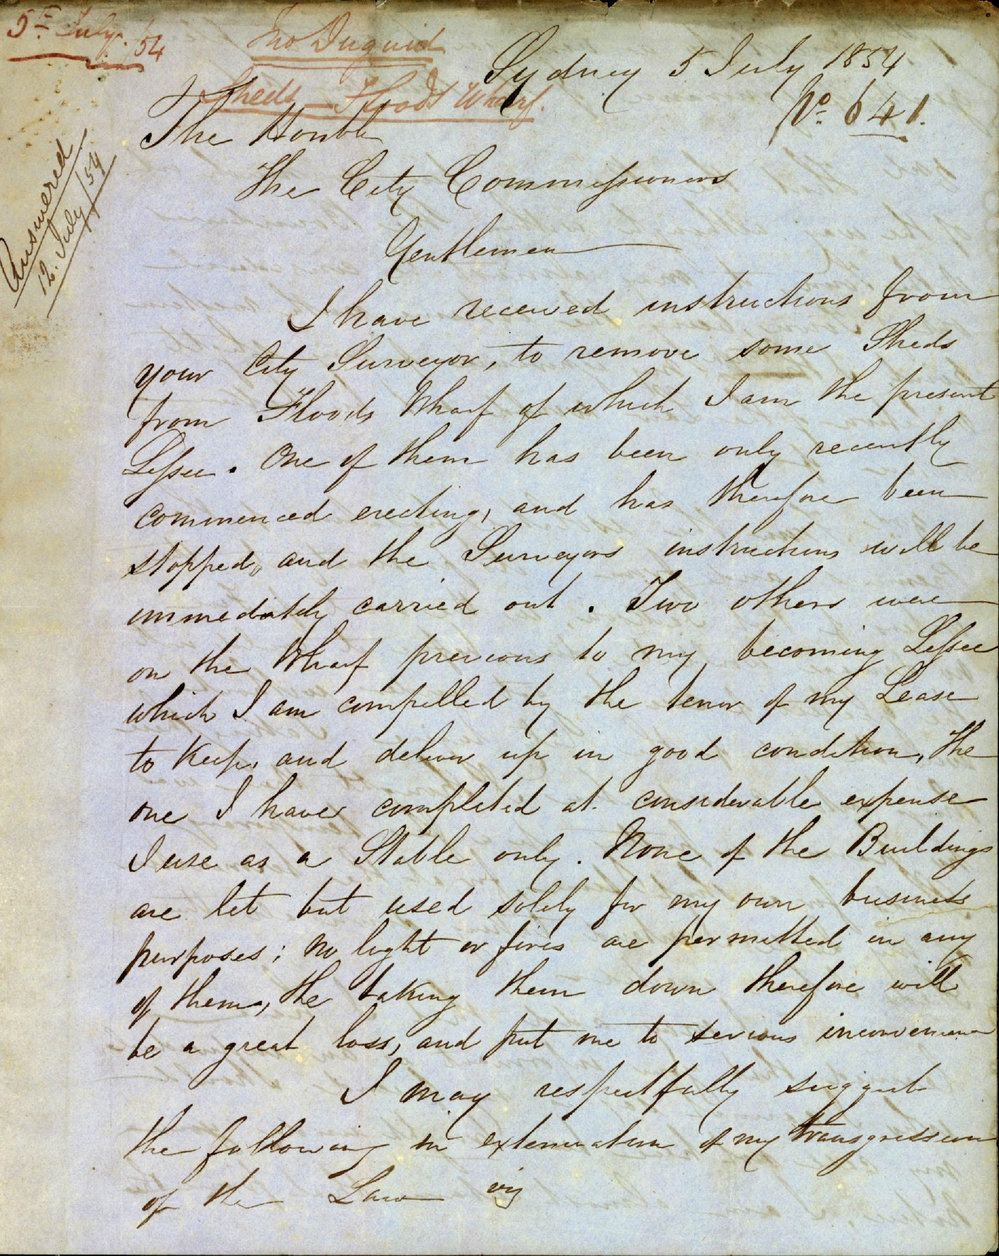 5th July. 54
Jno Duguid
Sheds — Floods Wharf.
Sydney 5 July 1854
No. 641.
Answered
12. July/54
The Honble
The City Commissioners
Gentlemen
I have received instructions from
your City Surveyor, to remove some Sheds
from Floods Wharf of which I am the present
Lessee. One of them has been only recently
commenced erecting, and has therefore been
stopped, and the Surveyors instructions will be
immediately carried out. Two others were
on the Wharf previous to my becoming Lessee
which I am compelled by the tenor of my Lease
to keep, and deliver up in good condition, the
one I have completed at considerable expense
I use as a Stable only. None of the Buildings
are let but used solely for my own business
purposes; no light or fires are permitted in any
of them, the taking them down therefore will
be a great loss, and put me to serious inconvenience
I may respectfully suggest
the following in extenuation of my transgression
of the Law viz